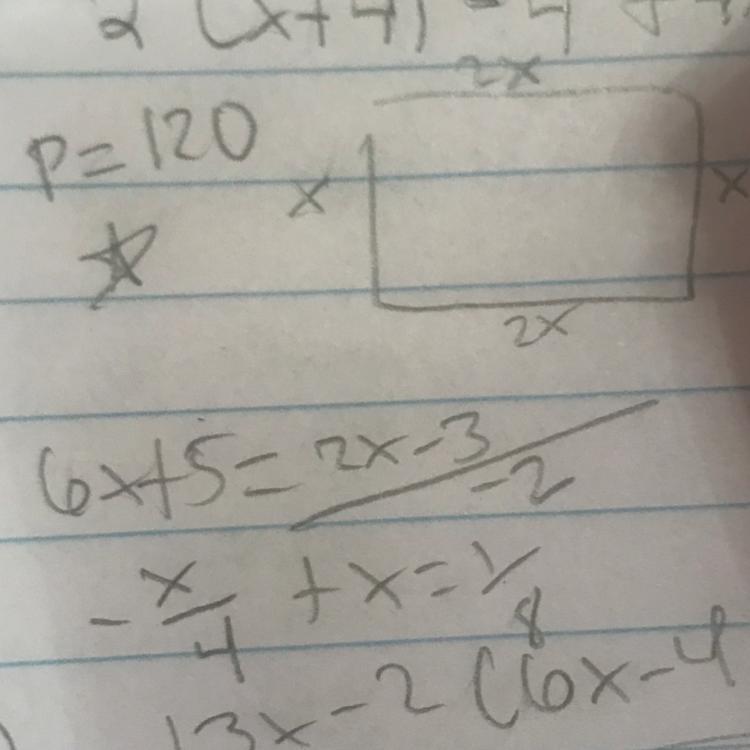 2 (x+4) - 4
2x
P=120
x
x
2x
6x+5= 2x-3
-2
- x/4 + x = 1/8
13x-2 (6x-4